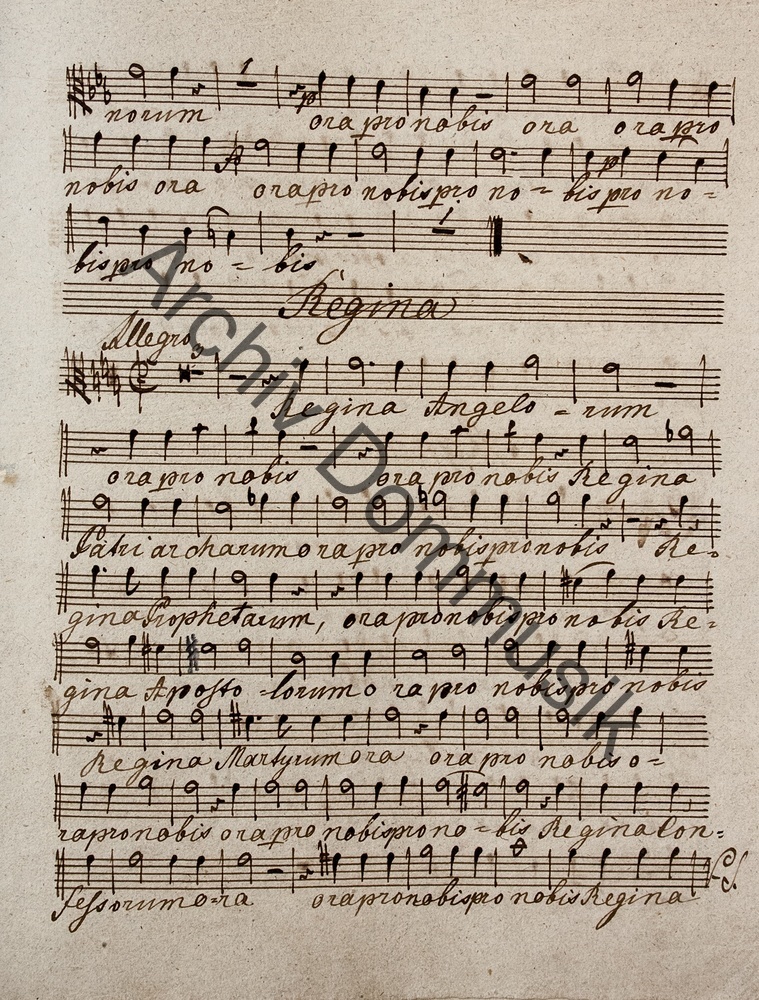 1
p
norum ora pro nobis ora ora pro
nobis ora ora pro nobis pro no = bis pro no =
1
bis pro no = bis
Regina
Allegro
3
Regina Angelo = rum
ora pro nobis ora pro nobis Regina
Patriarcharum ora pro nobis pro nobis Re=
gina Prophetarum, ora pro nobis pro nobis Re=
gina Aposto =lorum o ra pro nobis pro nobis
Regina Martyrum ora ora pro nobis o=
ra pro nobis ora pro nobis pro no = bis Regina Con=
fessorum o=ra ora pro nobis pro nobis Regina
Archiv Dommusik